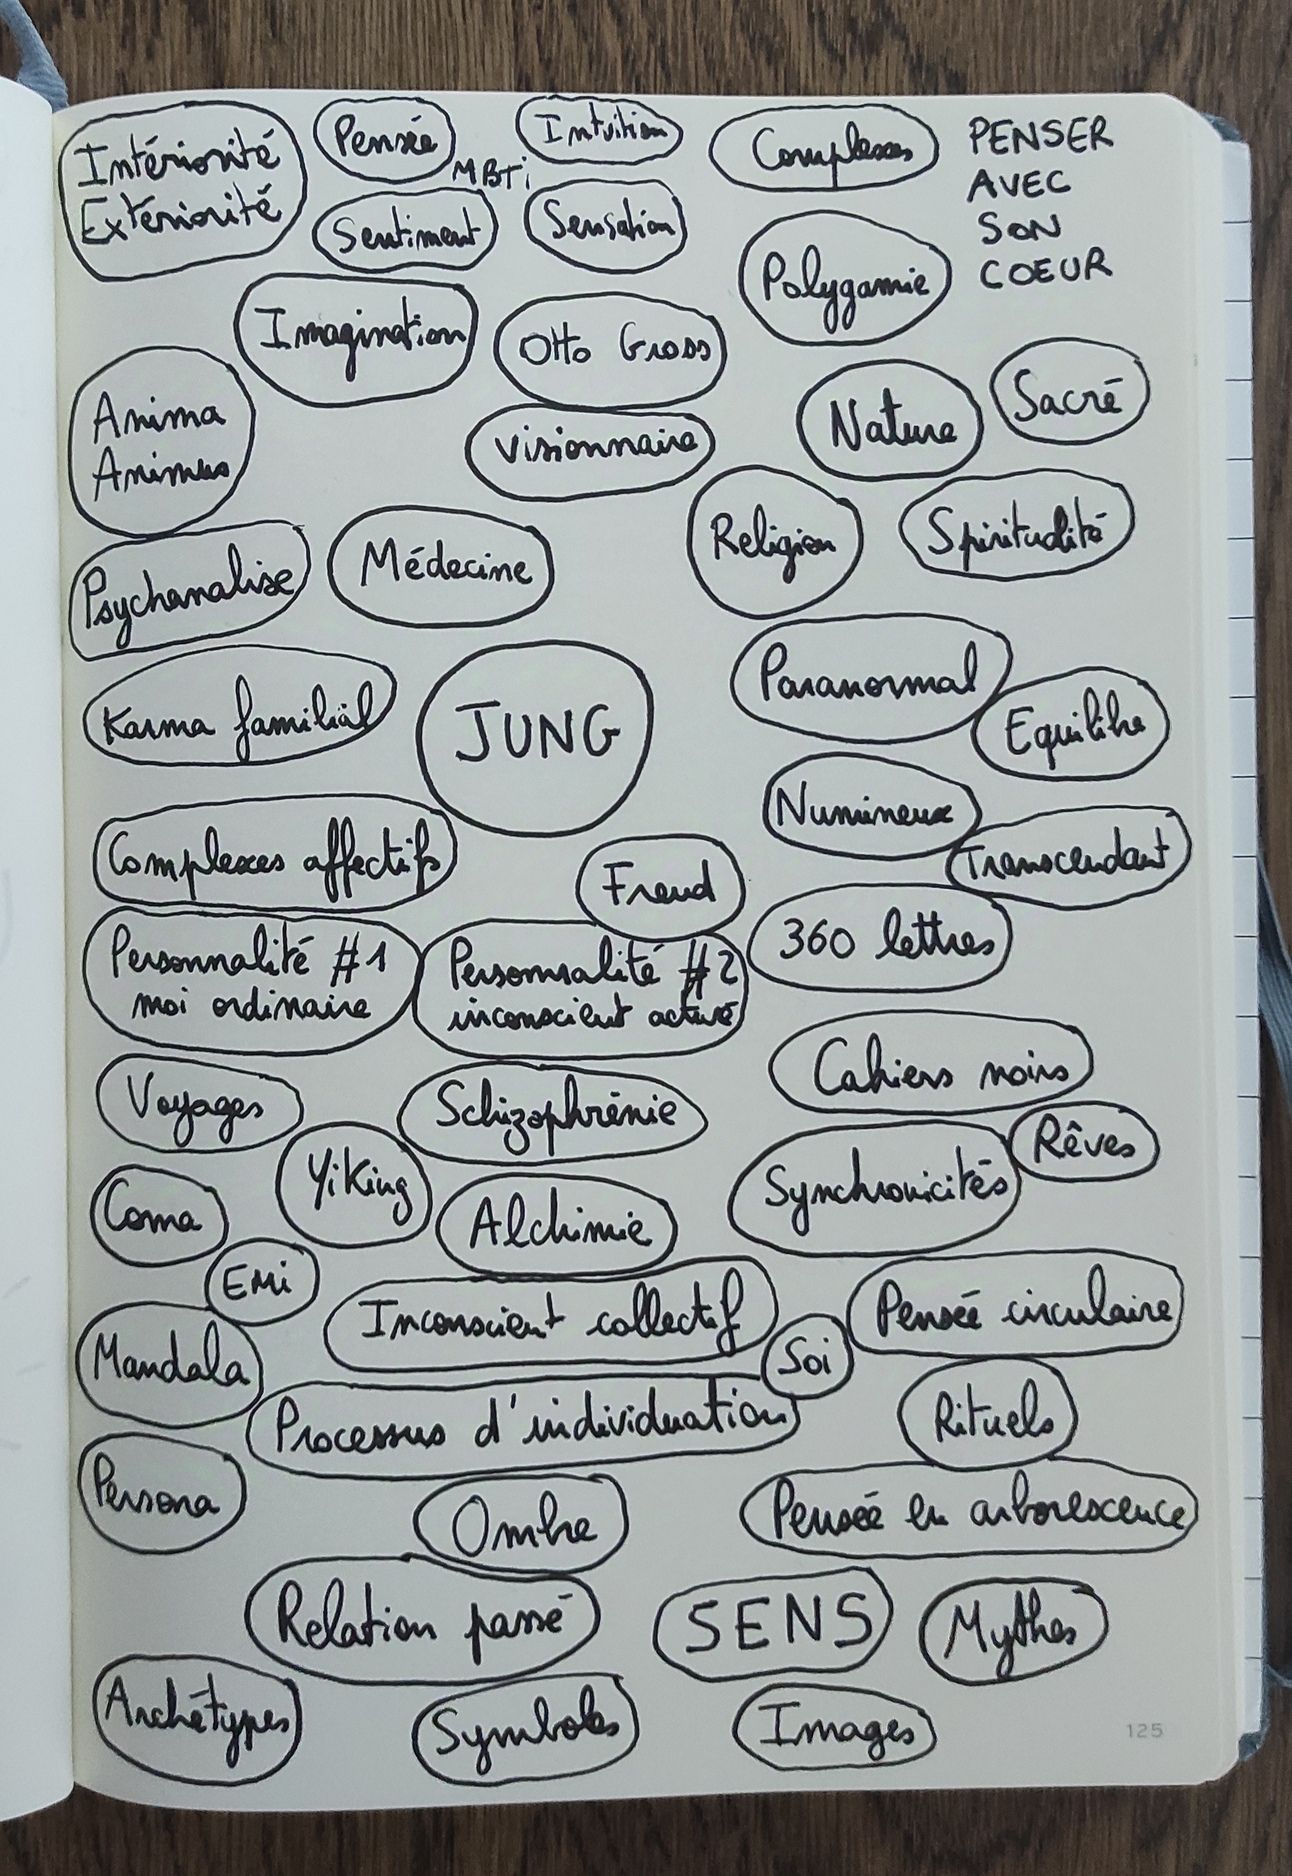 Intériorité
Extériorité
Pensée
MBTi
Intuition
Sentiment
Sensation
Complexes
PENSER
AVEC
SON
COEUR
Polygamie
Imagination
Otto Gross
Anima
Animus
visionnaire
Nature
Sacré
Psychanalise
Médecine
Religion
Spiritualité
Karma familial
JUNG
Paranormal
Equilibre
Numineux
Transcendant
Complexes affectifs
Freud
360 lettres
Personnalité #1
moi ordinaire
Personnalité #2
inconscient activé
Cahiers noirs
Voyages
Schizophrénie
Rêves
Yi King
Synchronicités
Coma
Alchimie
EMi
Inconscient collectif
Pensée circulaire
Mandala
Soi
Processus d'individuation
Rituels
Persona
Ombre
Pensée en arborescence
Relation passé
SENS
Mythes
Archétypes
Symboles
Images
125